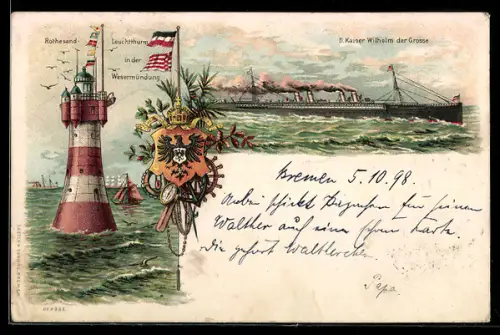 Rothesand-
Leuchtthurm
in der
Wesermündung
D. Kaiser Wilhelm der Grosse
Bremen 5.10.98.
schickt für seinen
Walther auf einer Karte
die gehört Waltherchen
Papa